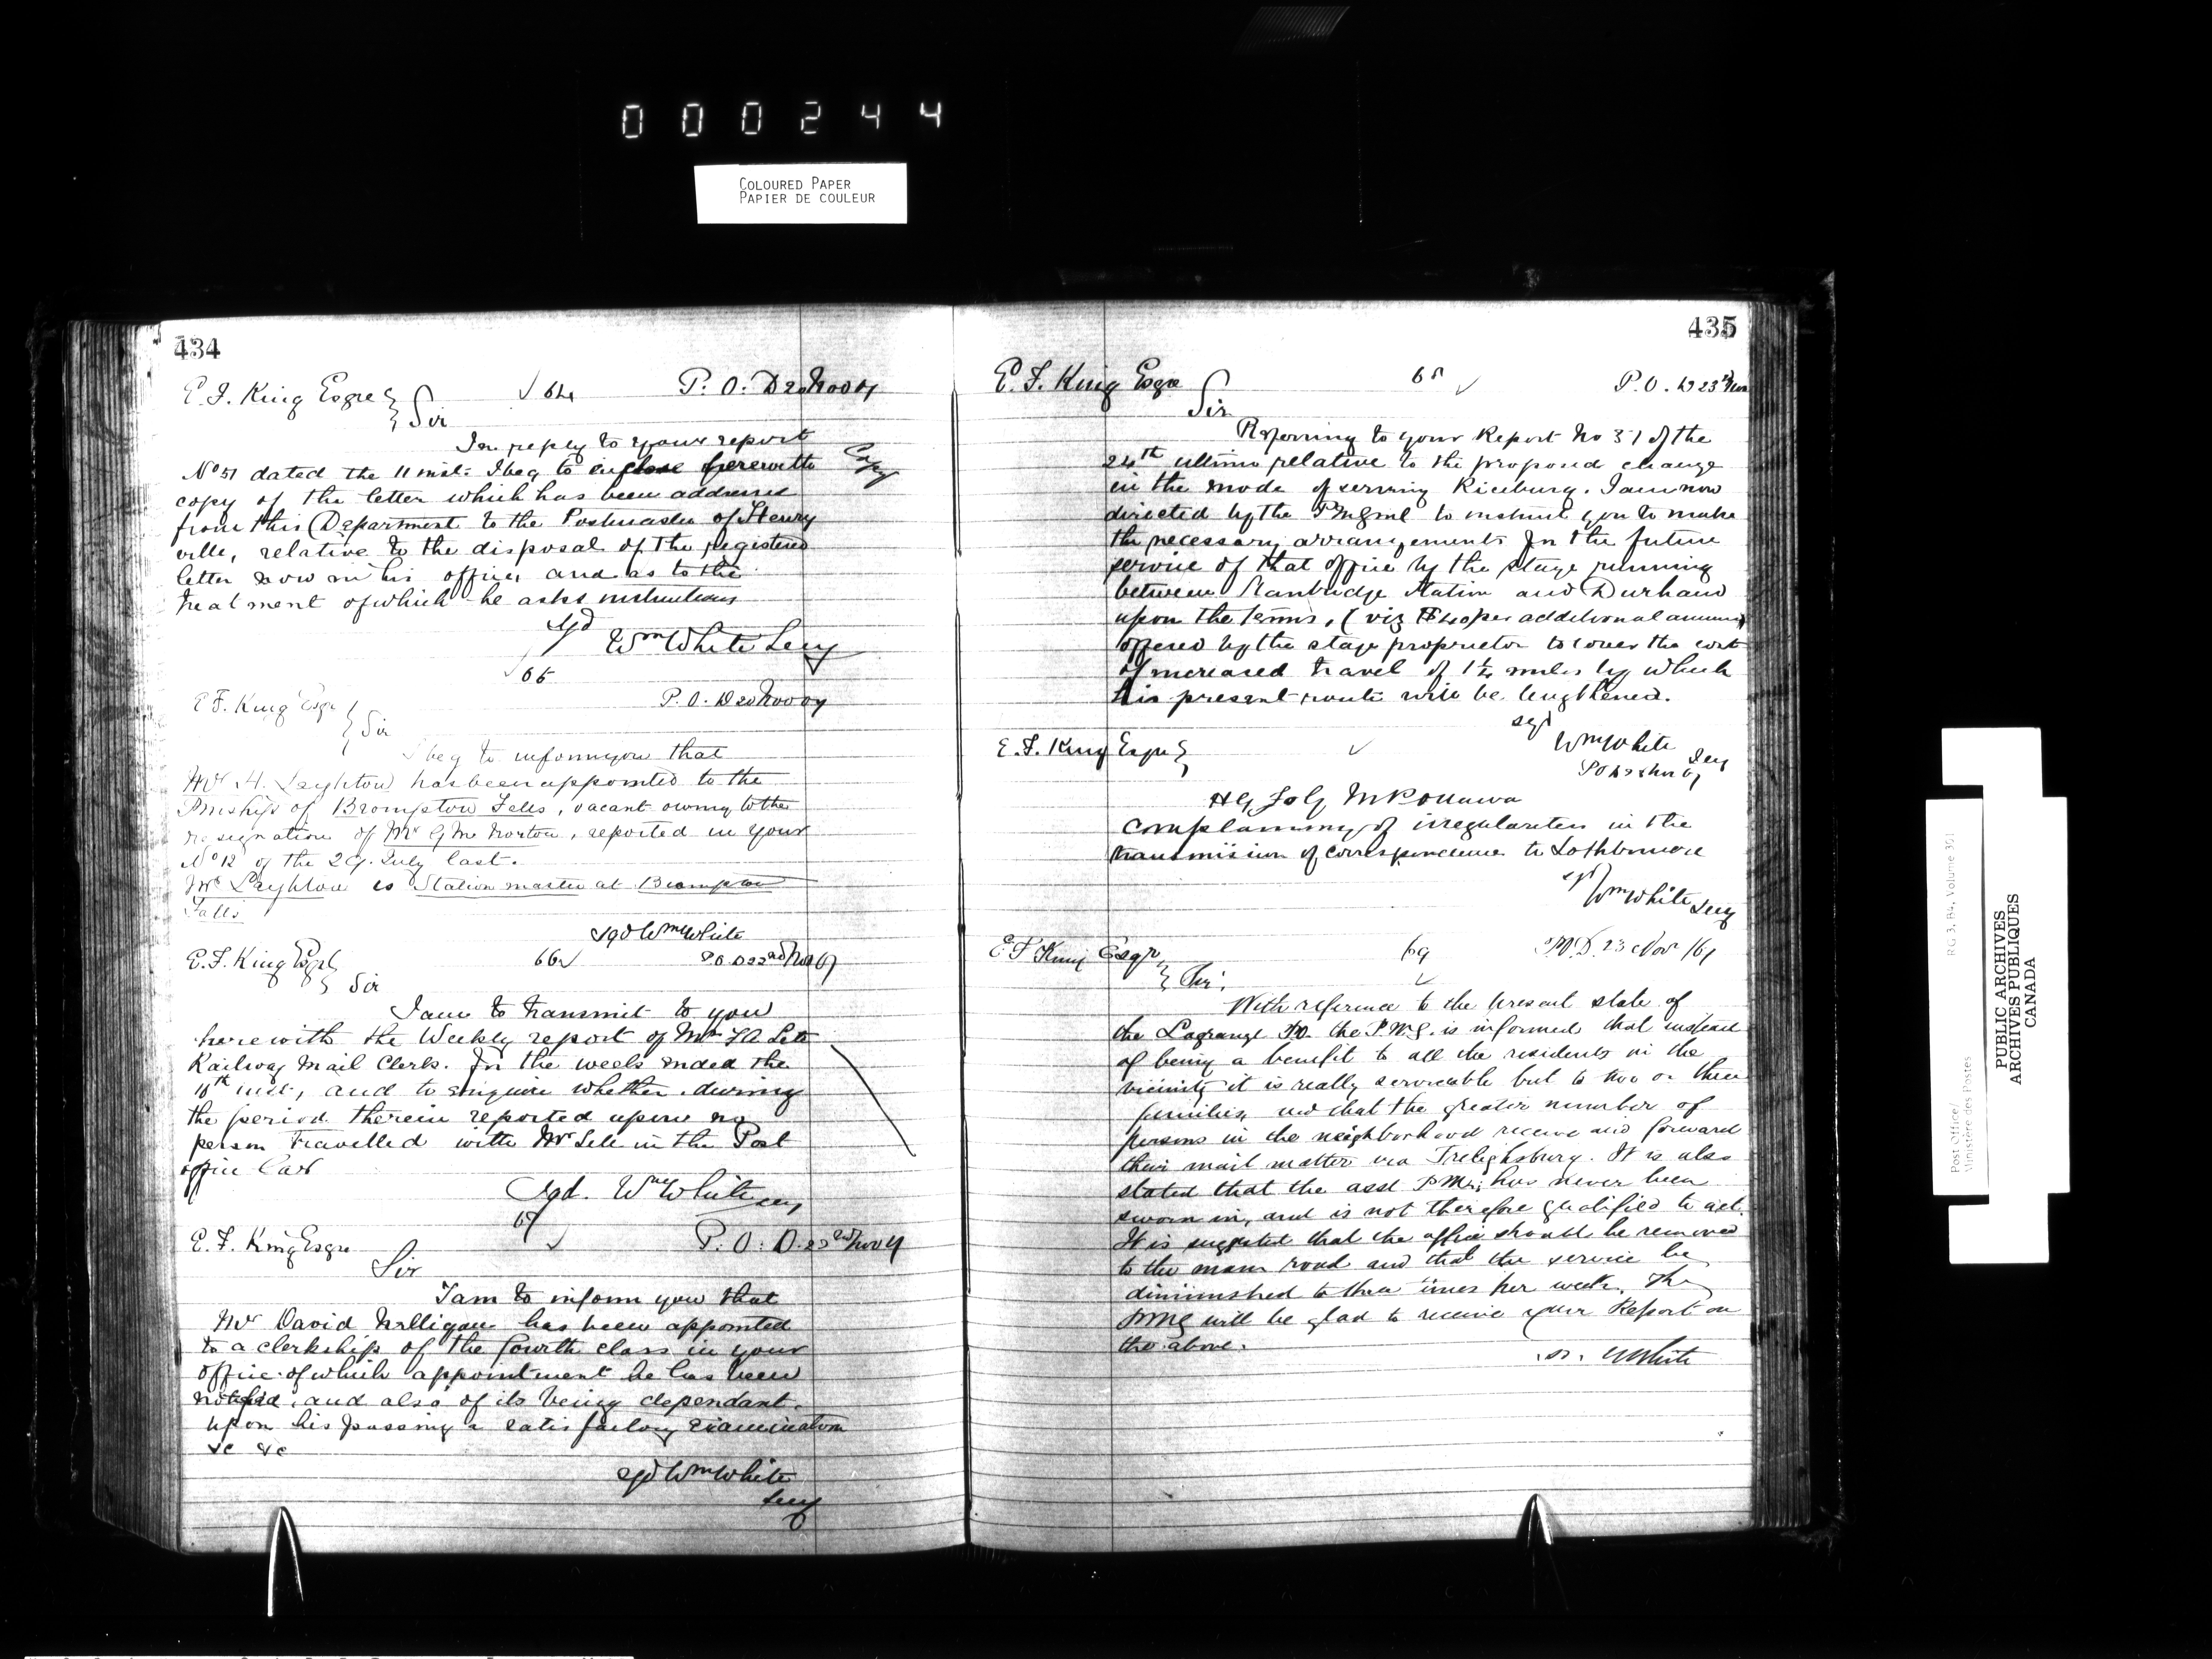 000244
COLOURED PAPER
PAPIER DE COULEUR
434
E. F. King Esqre
√ 64
P. O. D 20 Nov
Sir
In reply to your report
No 51 dated the 11 inst: I beg to enclose herewith
Copy
copy of the letter which has been addressed
from this Department to the Postmaster of Henry
ville, relative to the disposal of the registered
letter now in his office, and as to the
treatment of which he asks instructions
sgd
Wm White Secy
√ 65
E F. King Esqr
P. O. D 20 Nov
Sir
I beg to inform you that
Mr H. Leyhton has been appointed to the
Pmship of Brompton Falls, vacant owing to the
resignation of Mr G Norton, reported in your
No 12 of the 29. July last.
Mr Leyhton is Station master at Brompton
Falls
sgd Wm White
E. F. King Esqr
66 √
P. O. D 22nd Nov
Sir
I am to transmit to you
herewith the Weekly report of Mr
Railway Mail Clerk. for the week ended the
16th inst, and to enquire whether during
the period therein reported upon no
person travelled with Mr in the Post
office Car
Sgd. Wm White Secy
67 √
E. F. King Esqre
P. O. D. 22nd Nov
Sir
I am to inform you that
Mr David has been appointed
to a clerkship of the fourth class in your
office of which appointment he has been
notified, and also of its being dependant
upon his passing a satisfactory examination
&c &c
sgd Wm White
Secy
435
E. F. King Esqre
68 √
P. O. D 23rd Nov
Sir
Referring to your Report No 31 of the
24th ultimo relative to the proposed change
in the mode of serving Riceburg. I am now
directed by the PMGenl to instruct you to make
the necessary arrangements for the future
service of that office by the stage running
between Stanbridge Station and Durham
upon the terms, (viz per additional annum)
offered by the stage proprietor to cover the cost
of increased travel of 1¼ miles by which
his present route will be lengthened.
sgd
Wm White
Secy
E. F. King Esqre
√
complaining of irregularities in the
transmission of correspondence to
sgd
Wm White Secy
E F King Esqr,
69
√
23 Nov
Sir,
With reference to the present state of
the Lagrange P.O. the P.M.G. is informed that instead
of being a benefit to all the residents in the
vicinity it is really serviceable but to two or three
families, and that the greater number of
persons in the neighborhood receive and forward
their mail matter via Frelighsburg. It is also
stated that the asst P.Mr; has never been
sworn in, and is not therefore qualified to act.
It is suggested that the office should be removed
to the main road and that the service be
diminished to three times per week. The
PMG will be glad to receive your Report on
the above.
White
Post Office/
Ministère des Postes
RG 3, B4, Volume 301
PUBLIC ARCHIVES
ARCHIVES PUBLIQUES
CANADA